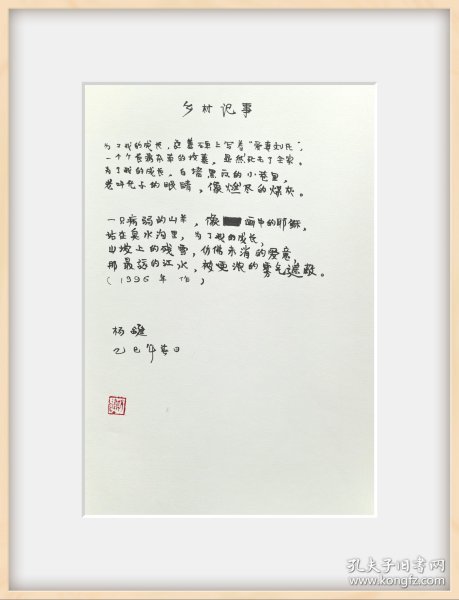 乡村记事
为了我的成长，这墓碑上写着“爱妻刘氏”，
一个个普通人的坟墓，显然死去了全家。
为了我的成长，白墙黑瓦的小巷里，
老叫化子的眼睛，像燃尽的煤灰。
一只病弱的山羊，像画中的耶稣，
站在臭水沟里，为了我的成长，
山坡上的残雪，仿佛未消的爱意，
那最弱的江水，被更浓的雾气遮蔽。
（1996年作）
杨键
乙巳年春日
孔夫子旧书网
www.kongfz.com